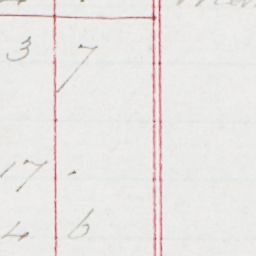 3 7
17 .
4 6